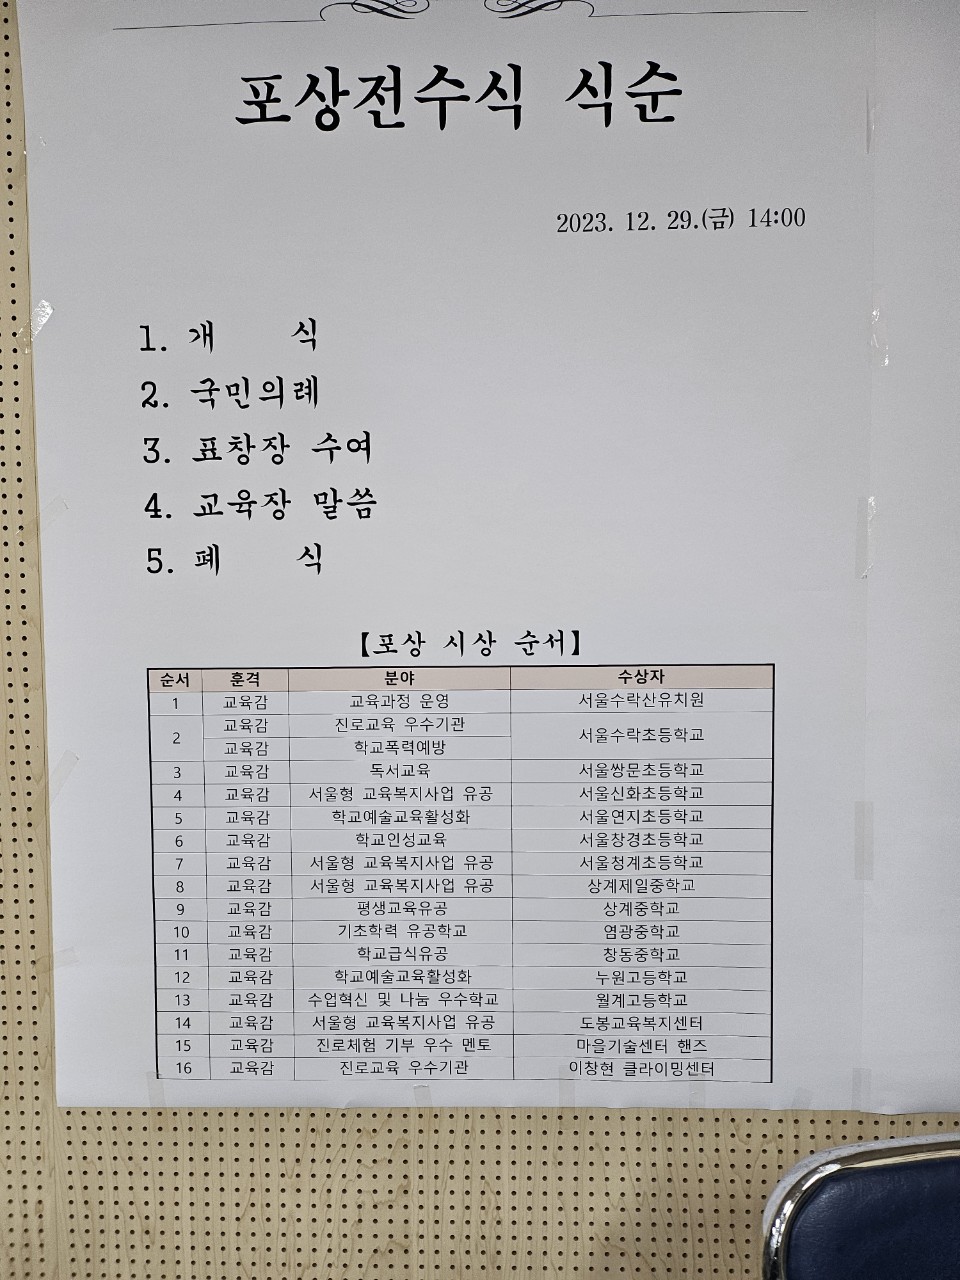 포상전수식 식순
2023. 12. 29.(금) 14:00
1. 개 식
2. 국민의례
3. 표창장 수여
4. 교육장 말씀
5. 폐 식
【포상 시상 순서】
순서 훈격 분야 수상자
1 교육감 교육과정 운영 서울수락산유치원
2 교육감 진로교육 우수기관 서울수락초등학교
교육감 학교폭력예방
3 교육감 독서교육 서울쌍문초등학교
4 교육감 서울형 교육복지사업 유공 서울신화초등학교
5 교육감 학교예술교육활성화 서울연지초등학교
6 교육감 학교인성교육 서울창경초등학교
7 교육감 서울형 교육복지사업 유공 서울청계초등학교
8 교육감 서울형 교육복지사업 유공 상계제일중학교
9 교육감 평생교육유공 상계중학교
10 교육감 기초학력 유공학교 염광중학교
11 교육감 학교급식유공 창동중학교
12 교육감 학교예술교육활성화 누원고등학교
13 교육감 수업혁신 및 나눔 우수학교 월계고등학교
14 교육감 서울형 교육복지사업 유공 도봉교육복지센터
15 교육감 진로체험 기부 우수 멘토 마을기술센터 핸즈
16 교육감 진로교육 우수기관 이창현 클라이밍센터